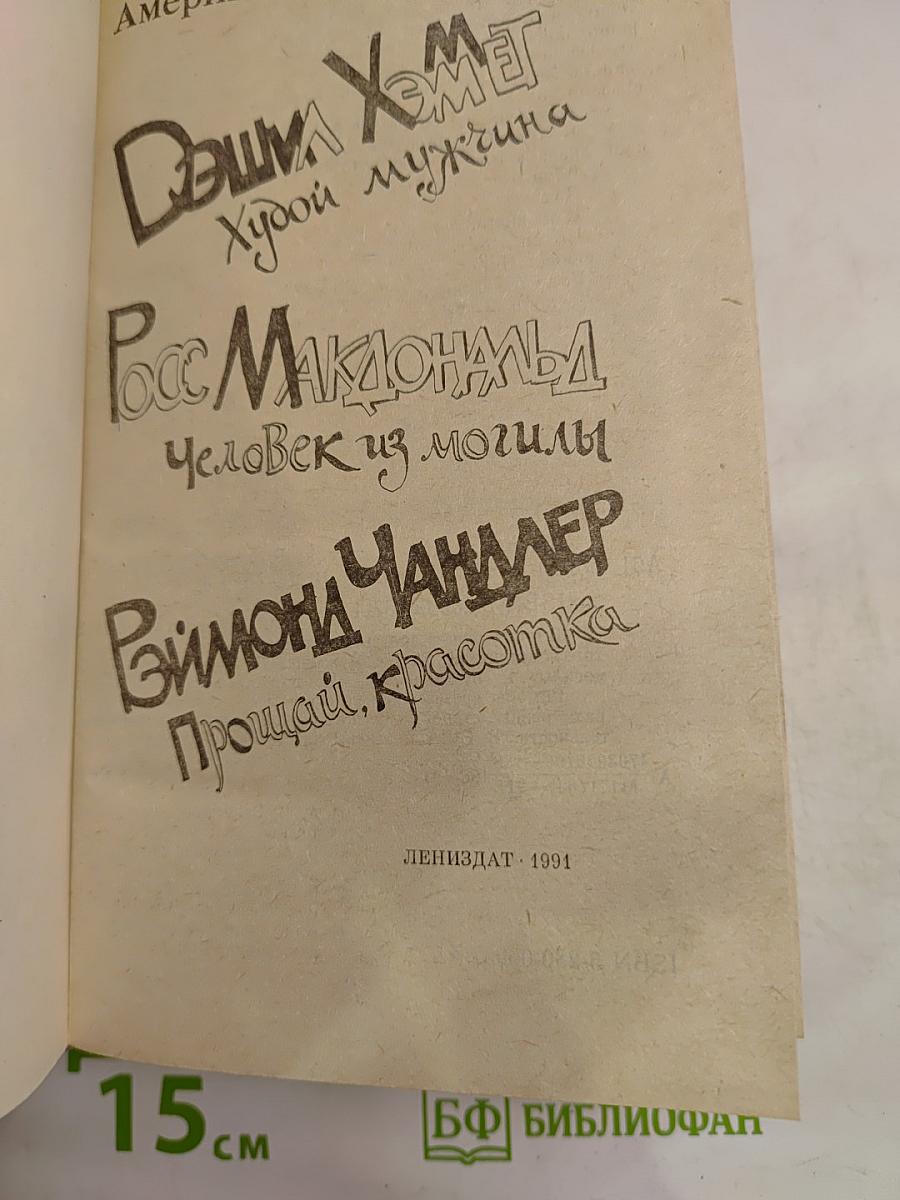 Амери
Дэшил Хэммет
Худой мужчина
Росс Макдональд
Человек из могилы
Рэймонд Чандлер
Прощай, красотка
ЛЕНИЗДАТ · 1991
15 см
БФ БИБЛИОФАН